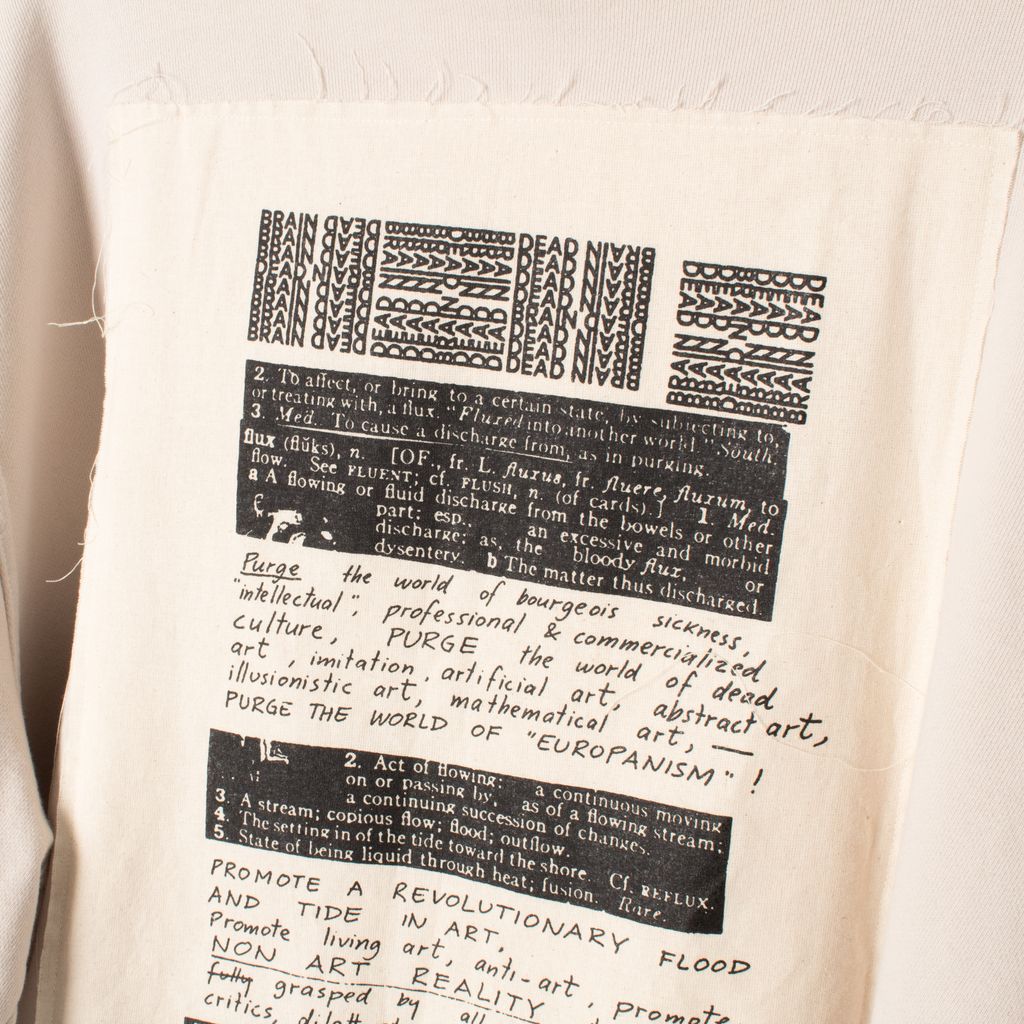 BRAIN DEAD DEAD BRAIN
BRAIN DEAD DEAD BRAIN
2. To affect, or bring to a certain state, by subjecting to,
or treating with, a flux. "Fluxed into another world." South.
3. Med. To cause a discharge from, as in purging.
flux (flŭks), n. [OF., fr. L. fluxus, fr. fluere, fluxum, to
flow. See FLUENT; cf. FLUSH, n. (of cards).] 1. Med.
a A flowing or fluid discharge from the bowels or other
part; esp., an excessive and morbid
discharge; as, the bloody flux, or
dysentery. b The matter thus discharged.
Purge the world of bourgeois sickness,
"intellectual", professional & commercialized
culture, PURGE the world of dead
art, imitation, artificial art, abstract art,
illusionistic art, mathematical art, —
PURGE THE WORLD OF "EUROPANISM" !
2. Act of flowing: a continuous moving
on or passing by, as of a flowing stream;
a continuing succession of changes.
3. A stream; copious flow; flood; outflow.
4. The setting in of the tide toward the shore. Cf. REFLUX.
5. State of being liquid through heat; fusion. Rare.
PROMOTE A REVOLUTIONARY FLOOD
AND TIDE IN ART,
Promote living art, anti-art, promote
NON ART REALITY
fully grasped by all
critics,